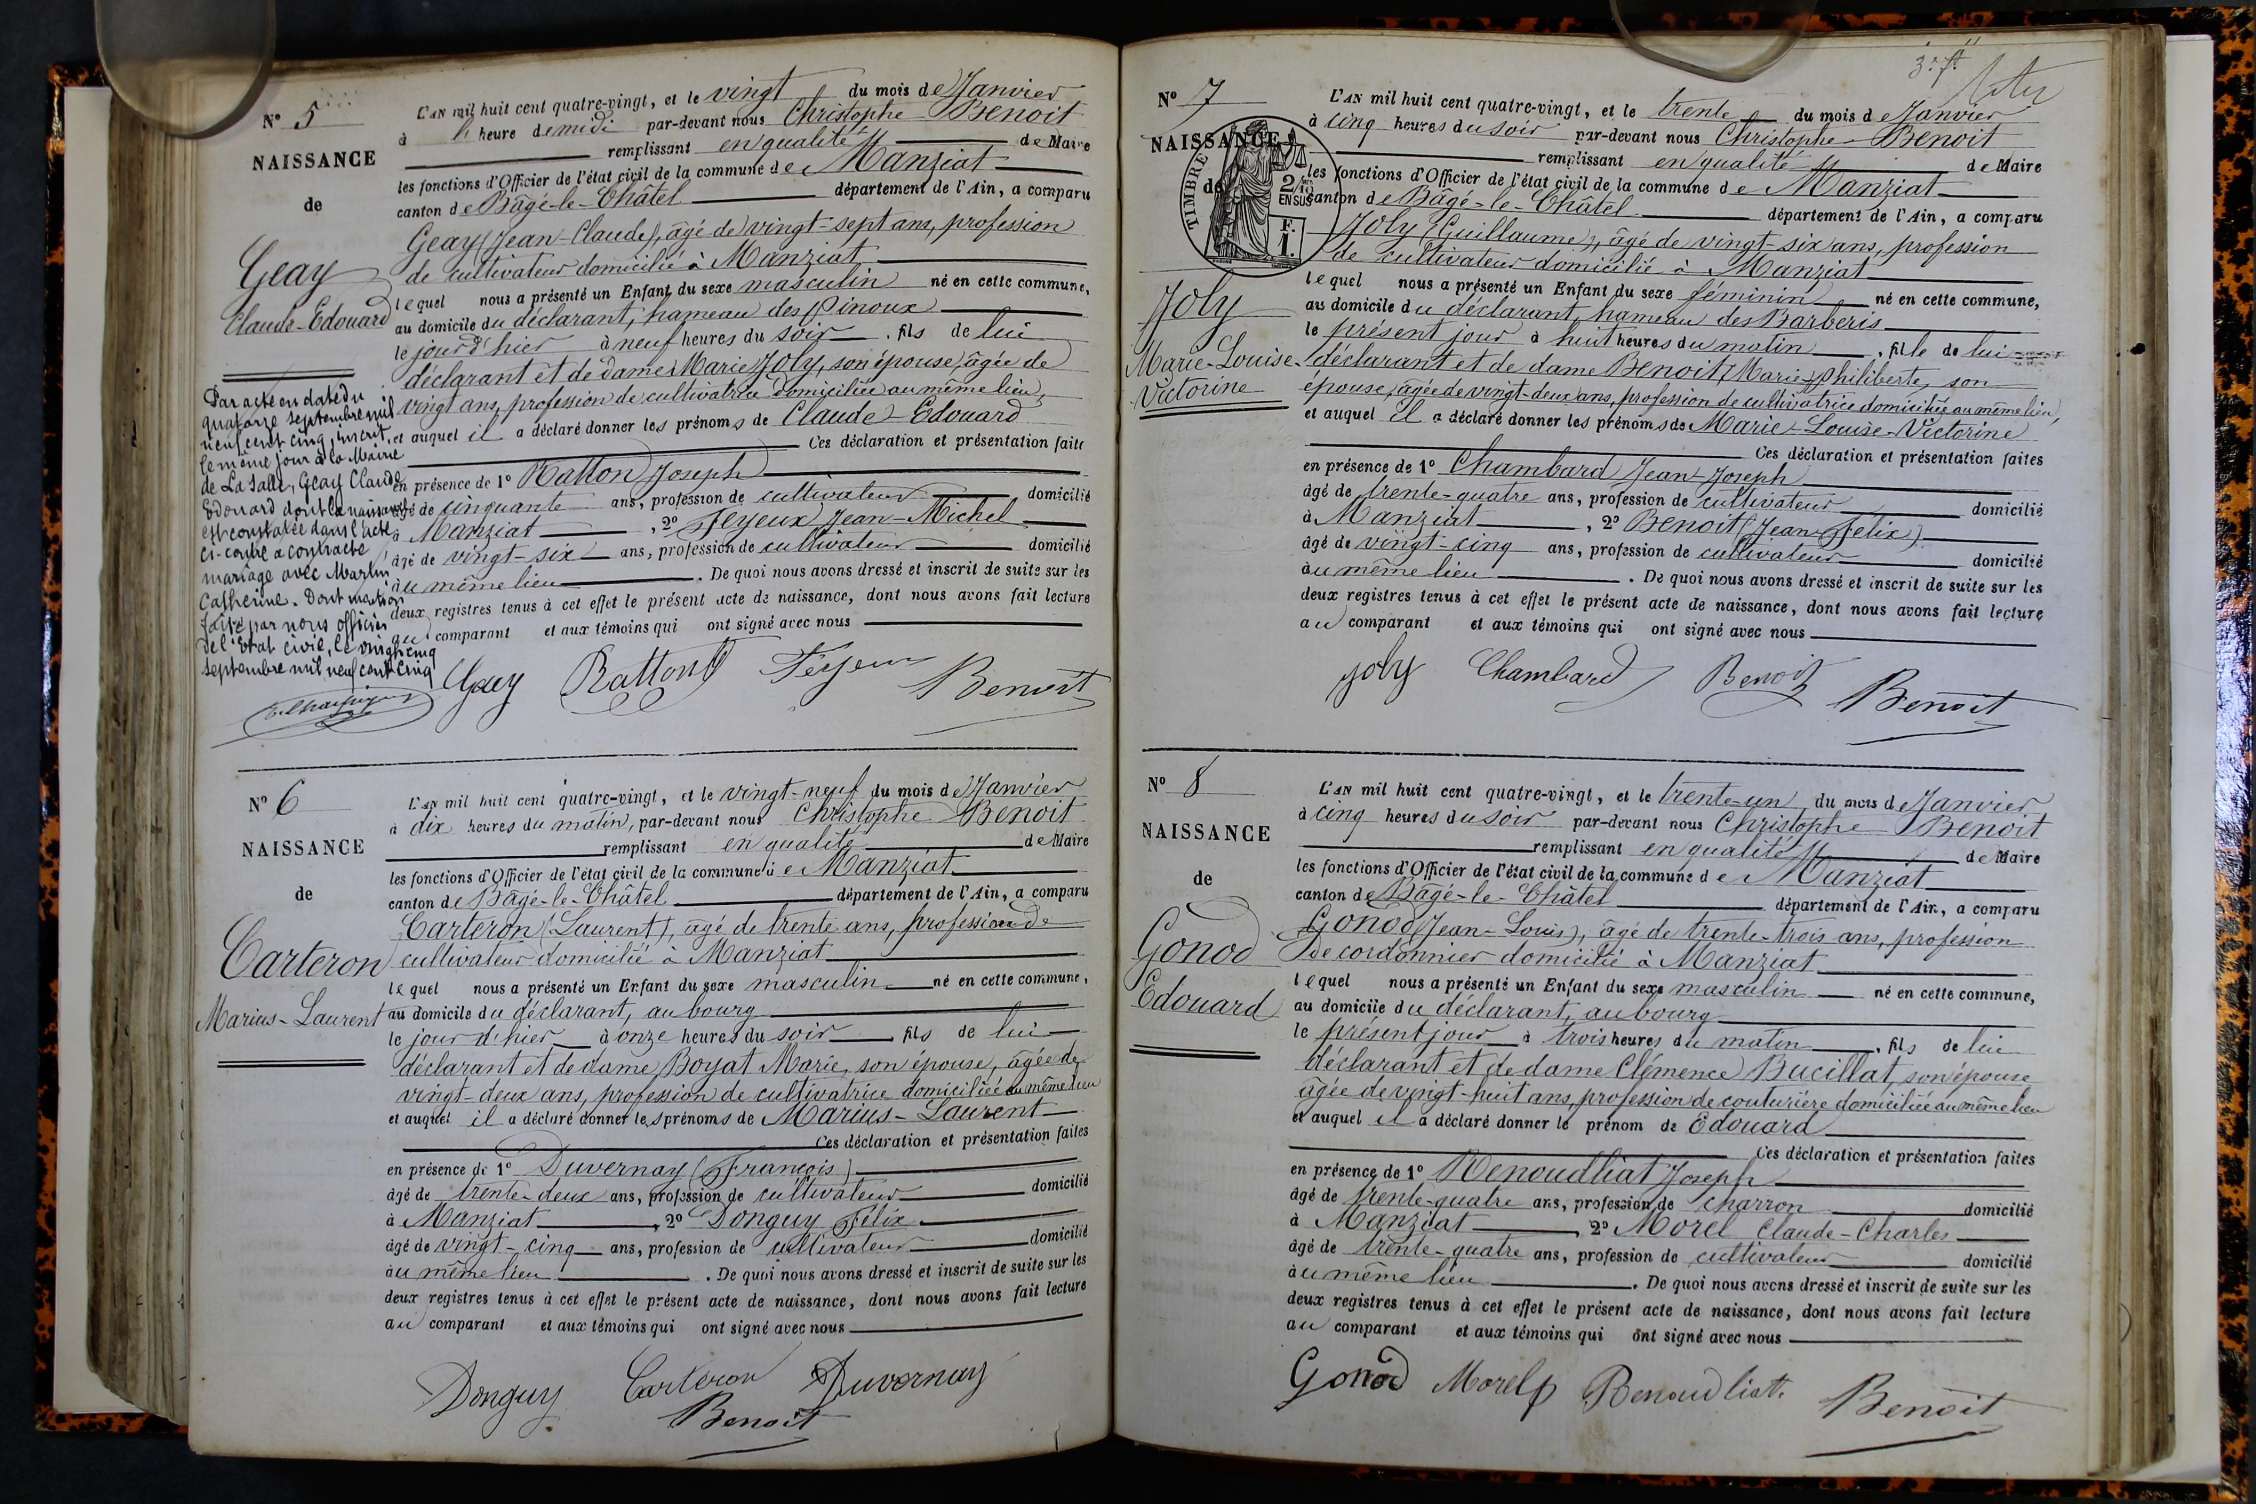 Nº 5
NAISSANCE
de
Geay
Claude-Edouard
Par acte en date du
quatorze septembre mil
neuf cent cinq, inscrit
le même jour à la Mairie
de La Salle, Geay Claude
Edouard dont la naissance
est constatée dans l'acte
ci-contre a contracté
mariage avec Mazlin
Catherine. Dont mention
faite par nous officier
de l'Etat civil, le vingt cinq
septembre mil neuf cent cinq
L'AN mil huit cent quatre-vingt, et le vingt du mois de Janvier
à heure de midi par-devant nous Christophe Benoit
remplissant en qualité de Maire
les fonctions d'Officier de l'état civil de la commune de Manziat
canton de Bâgé-le-Châtel département de l'Ain, a comparu
Geay (Jean-Claude), âgé de vingt-sept ans, profession
de cultivateur domicilié à Manziat
lequel nous a présenté un Enfant du sexe masculin né en cette commune,
au domicile du déclarant, hameau des Pinoux
le jour d'hier à neuf heures du soir, fils de lui
déclarant et de dame Marie Joly, son épouse, âgée de
vingt ans, profession de cultivatrice domiciliée au même lieu,
et auquel il a déclaré donner les prénoms de Claude-Edouard
Ces déclaration et présentation faites
en présence de 1º Ratton Joseph
âgé de cinquante ans, profession de cultivateur domicilié
à Manziat, 2º Feyeux Jean-Michel
âgé de vingt-six ans, profession de cultivateur domicilié
au même lieu. De quoi nous avons dressé et inscrit de suite sur les
deux registres tenus à cet effet le présent acte de naissance, dont nous avons fait lecture
au comparant et aux témoins qui ont signé avec nous
Geay Ratton Feyeux Benoit
Nº 6
NAISSANCE
de
Carteron
Marius-Laurent
L'AN mil huit cent quatre-vingt, et le vingt-neuf du mois de Janvier
à dix heures du matin, par-devant nous Christophe Benoit
remplissant en qualité de Maire
les fonctions d'Officier de l'état civil de la commune de Manziat
canton de Bâgé-le-Châtel département de l'Ain, a comparu
Carteron (Laurent), âgé de trente ans, profession de
cultivateur domicilié à Manziat
lequel nous a présenté un Enfant du sexe masculin né en cette commune,
au domicile du déclarant, au bourg
le jour d'hier à onze heures du soir, fils de lui
déclarant et de dame Boyat Marie, son épouse, âgée de
vingt-deux ans, profession de cultivatrice domiciliée au même lieu
et auquel il a déclaré donner les prénoms de Marius-Laurent
Ces déclaration et présentation faites
en présence de 1º Duvernay (François)
âgé de trente-deux ans, profession de cultivateur domicilié
à Manziat, 2º Donguy Félix
âgé de vingt-cinq ans, profession de cultivateur domicilié
au même lieu. De quoi nous avons dressé et inscrit de suite sur les
deux registres tenus à cet effet le présent acte de naissance, dont nous avons fait lecture
au comparant et aux témoins qui ont signé avec nous
Donguy Carteron Duvernay
Benoit
Nº 7
NAISSANCE
de
TIMBRE
2/10 EN SUS
F. 1.
Joly
Marie-Louise-
Victorine
L'AN mil huit cent quatre-vingt, et le trente du mois de Janvier
à cinq heures du soir par-devant nous Christophe Benoit
remplissant en qualité de Maire
les fonctions d'Officier de l'état civil de la commune de Manziat
canton de Bâgé-le-Châtel département de l'Ain, a comparu
Joly (Guillaume), âgé de vingt-six ans, profession
de cultivateur domicilié à Manziat
lequel nous a présenté un Enfant du sexe féminin né en cette commune,
au domicile du déclarant, hameau des Barberis
le présent jour à huit heures du matin, fille de lui
déclarant et de dame Benoit, Marie-Philiberte, son
épouse, âgée de vingt-deux ans, profession de cultivatrice domiciliée au même lieu,
et auquel il a déclaré donner les prénoms de Marie-Louise-Victorine
Ces déclaration et présentation faites
en présence de 1º Chambard Jean-Joseph
âgé de trente-quatre ans, profession de cultivateur domicilié
à Manziat, 2º Benoit (Jean-Félix)
âgé de vingt-cinq ans, profession de cultivateur domicilié
au même lieu. De quoi nous avons dressé et inscrit de suite sur les
deux registres tenus à cet effet le présent acte de naissance, dont nous avons fait lecture
au comparant et aux témoins qui ont signé avec nous
Joly Chambard Benoit Benoit
Nº 8
NAISSANCE
de
Gonod
Edouard
L'AN mil huit cent quatre-vingt, et le trente-un du mois de Janvier
à cinq heures du soir par-devant nous Christophe Benoit
remplissant en qualité de Maire
les fonctions d'Officier de l'état civil de la commune de Manziat
canton de Bâgé-le-Châtel département de l'Ain, a comparu
Gonod (Jean-Louis), âgé de trente-trois ans, profession
de cordonnier domicilié à Manziat
lequel nous a présenté un Enfant du sexe masculin né en cette commune,
au domicile du déclarant, au bourg
le présent jour à trois heures du matin, fils de lui
déclarant et de dame Clémence Bucillat, son épouse
âgée de vingt-huit ans, profession de couturière domiciliée au même lieu
et auquel il a déclaré donner le prénom de Edouard
Ces déclaration et présentation faites
en présence de 1º Renoudliat Joseph
âgé de trente-quatre ans, profession de charron domicilié
à Manziat 2º Morel Claude-Charles
âgé de trente-quatre ans, profession de cultivateur domicilié
au même lieu. De quoi nous avons dressé et inscrit de suite sur les
deux registres tenus à cet effet le présent acte de naissance, dont nous avons fait lecture
au comparant et aux témoins qui ont signé avec nous
Gonod Morel Renoudliat Benoit